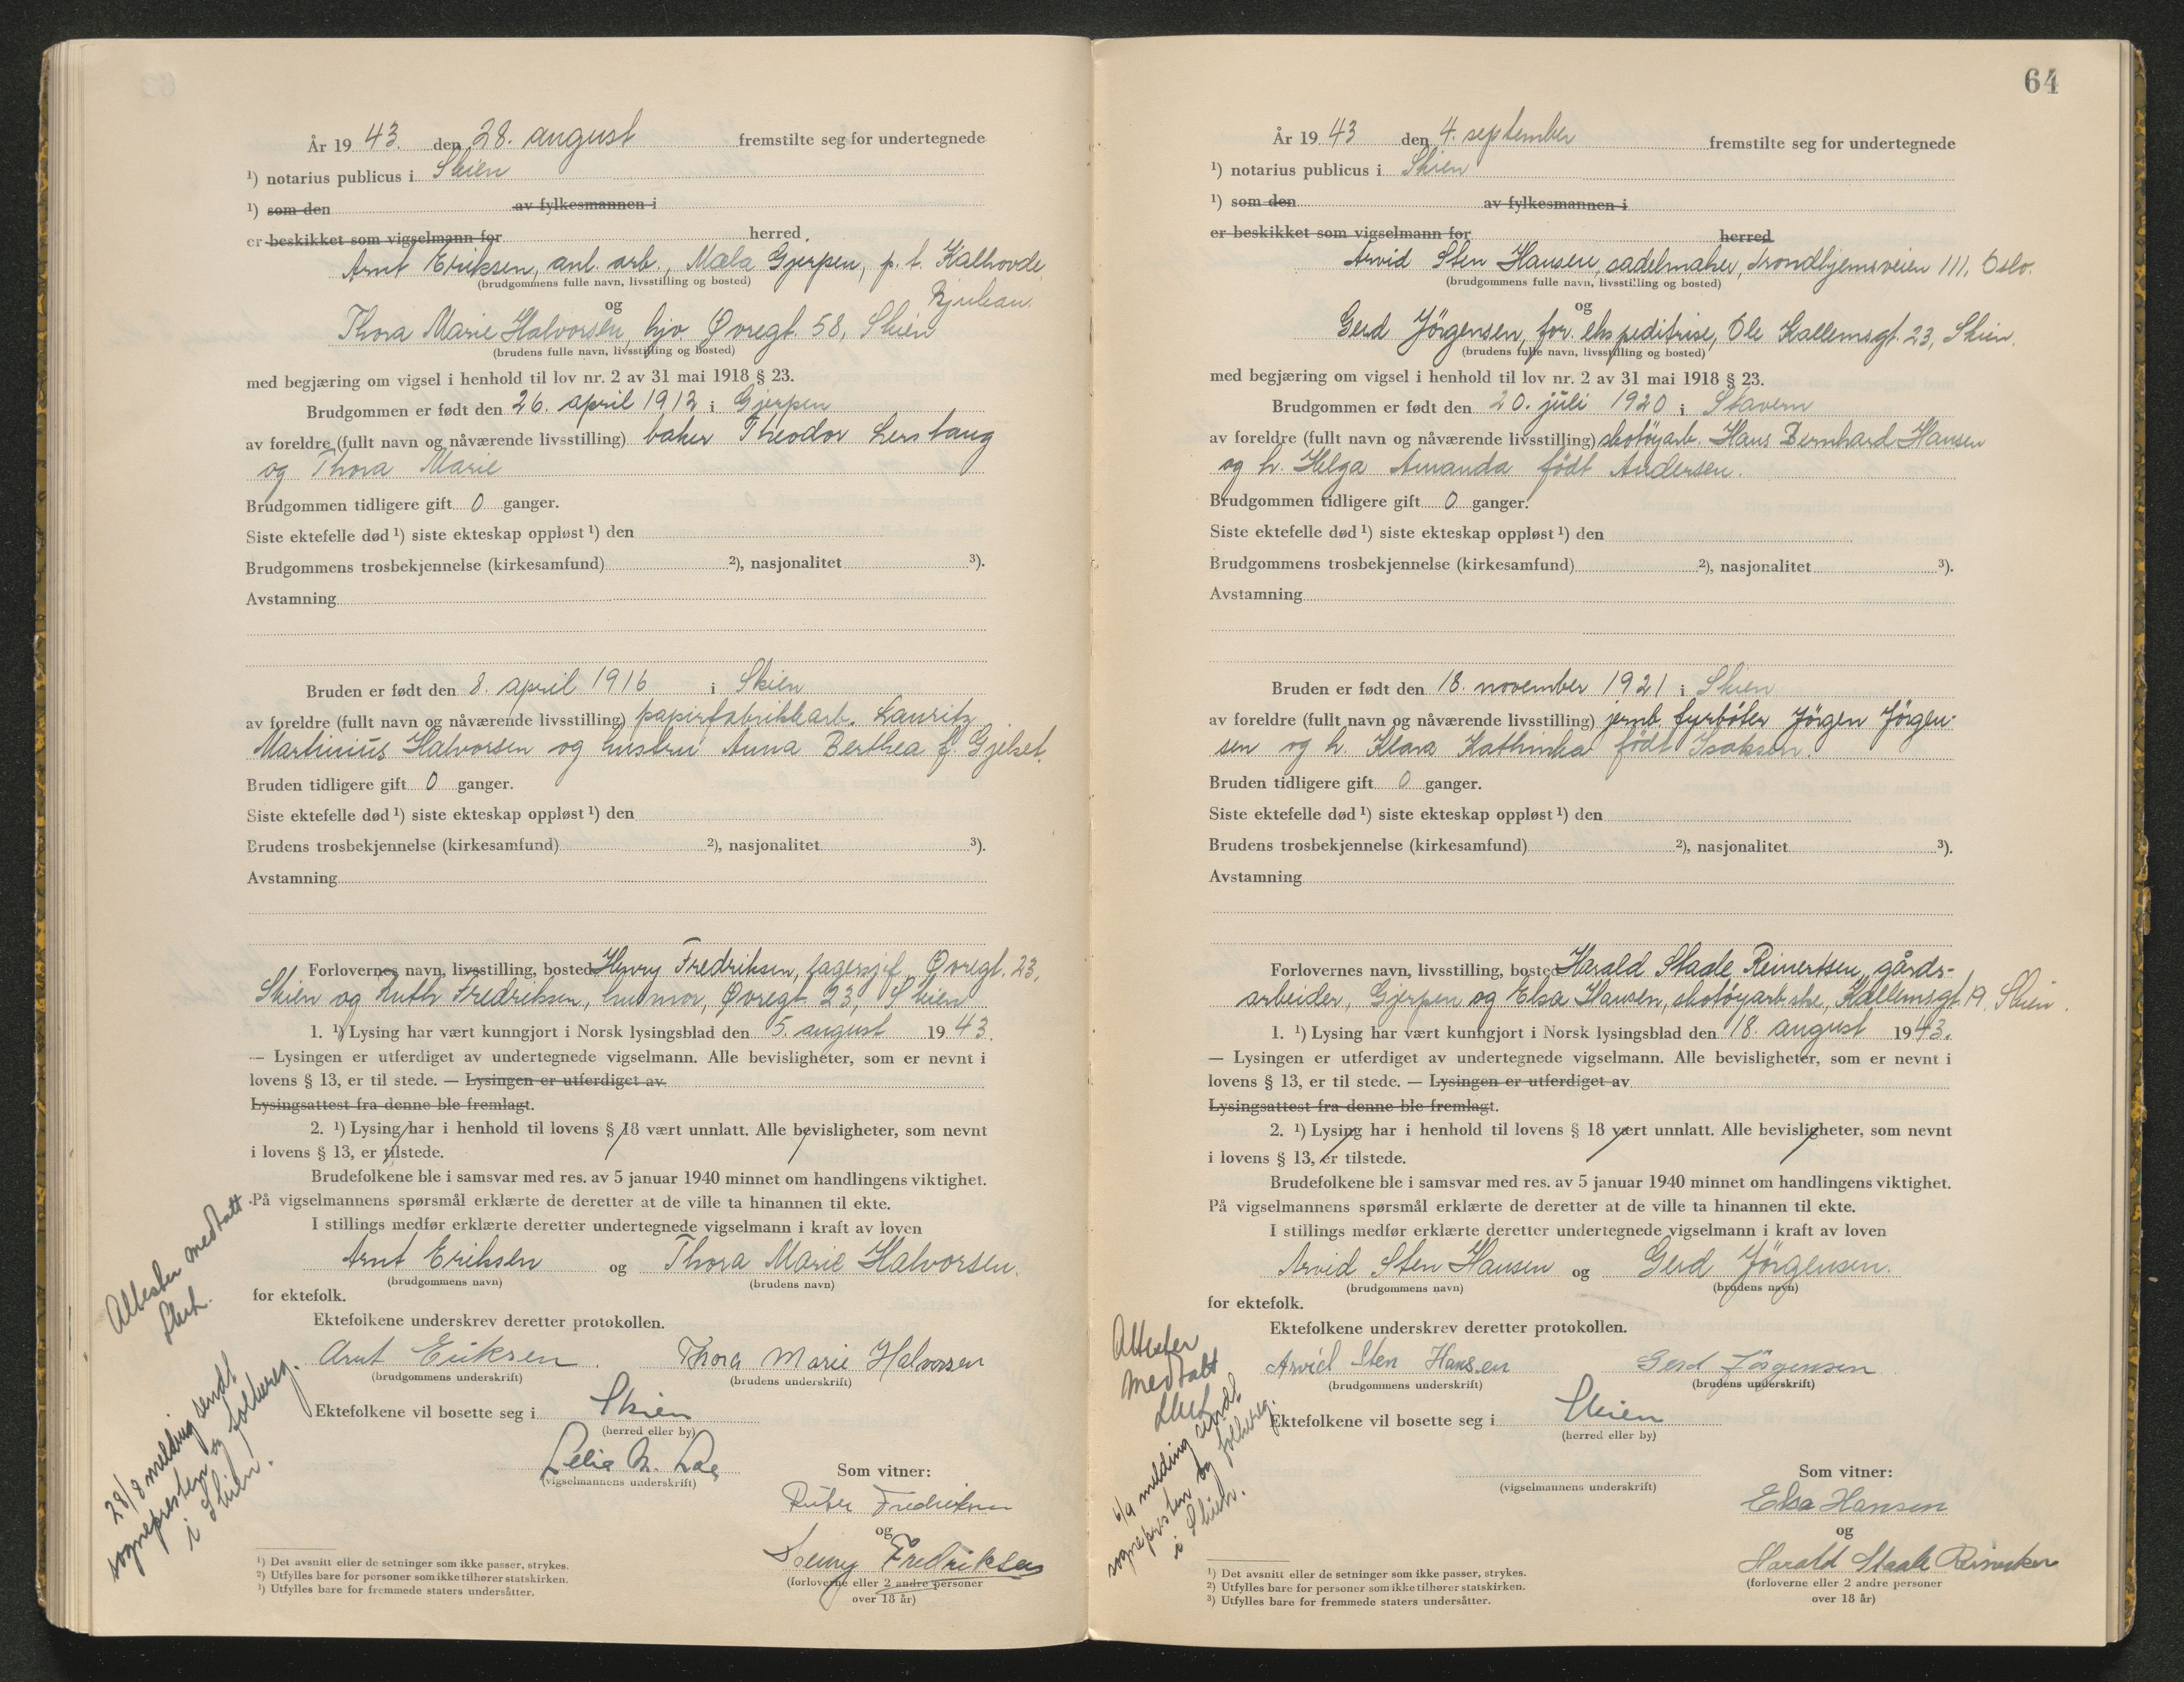 År 19 43. den 28. august fremstilte seg for undertegnede
¹) notarius publicus i Skien
¹) som den av fylkesmannen i
er beskikket som vigselmann for herred.
Arnt Eriksen, anl. arb., Mæla Gjerpen, p. t. Kalhovde,
(brudgommens fulle navn, livsstilling og bosted)
Rjukan.
og
Thora Marie Halvorsen, hjv. Øvregt. 58, Skien
(brudens fulle navn, livsstilling og bosted)
med begjæring om vigsel i henhold til lov nr. 2 av 31 mai 1918 § 23.
Brudgommen er født den 26. april 1912 i Gjerpen
av foreldre (fullt navn og nåværende livsstilling) baker Theodor Lerstang
og Thora Marie
Brudgommen tidligere gift 0 ganger.
Siste ektefelle død ¹) siste ekteskap oppløst ¹) den
Brudgommens trosbekjennelse (kirkesamfund) ²), nasjonalitet ³).
Avstamning
Bruden er født den 8. april 1916 i Skien
av foreldre (fullt navn og nåværende livsstilling) papirfabrikkarb. Lauritz
Martinius Halvorsen og hustru Anna Berthea f. Gjelset.
Bruden tidligere gift 0 ganger.
Siste ektefelle død ¹) siste ekteskap oppløst ¹) den
Brudens trosbekjennelse (kirkesamfund) ²), nasjonalitet ³).
Avstamning
Forlovernes navn, livsstilling, bosted Henry Fredriksen, lagersjef, Øvregt. 23,
Skien og Ruth Fredriksen, husmor, Øvregt 23, Skien
1. ¹) Lysing har vært kunngjort i Norsk lysingsblad den 5. august 19 43.
— Lysingen er utferdiget av undertegnede vigselmann. Alle bevisligheter, som er nevnt i
lovens § 13, er til stede. — Lysingen er utferdiget av
Lysingsattest fra denne ble fremlagt.
2. ¹) Lysing har i henhold til lovens § 18 vært unnlatt. Alle bevisligheter, som nevnt
i lovens § 13, er tilstede.
Brudefolkene ble i samsvar med res. av 5 januar 1940 minnet om handlingens viktighet.
På vigselmannens spørsmål erklærte de deretter at de ville ta hinannen til ekte.
I stillings medfør erklærte deretter undertegnede vigselmann i kraft av loven
Arnt Eriksen og Thora Marie Halvorsen.
(brudgommens navn) (brudens navn)
for ektefolk.
Ektefolkene underskrev deretter protokollen.
Arnt Eriksen. Thora Marie Halvorsen
(brudgommens underskrift) (brudens underskrift)
Ektefolkene vil bosette seg i Skien
(herred eller by)
(vigselmannens underskrift)
Som vitner:
Fredriksen
og
Henny Fredriksen
(forloverne eller 2 andre personer
over 18 år)
Attester medtatt
28/8 melding sendt
sognepresten og folkereg.
i Skien.
¹) Det avsnitt eller de setninger som ikke passer, strykes.
²) Utfylles bare for personer som ikke tilhører statskirken.
³) Utfylles bare for fremmede staters undersåtter.
64
År 19 43 den 4. september fremstilte seg for undertegnede
¹) notarius publicus i Skien
¹) som den av fylkesmannen i
er beskikket som vigselmann for herred
Arvid Sten Hansen, sadelmaker, Trondhjemsveien 111, Oslo.
(brudgommens fulle navn, livsstilling og bosted)
og
Gerd Jörgensen, for. ekspeditrise, Ole Kallemsgt. 23, Skien.
(brudens fulle navn, livsstilling og bosted)
med begjæring om vigsel i henhold til lov nr. 2 av 31 mai 1918 § 23.
Brudgommen er født den 20. juli 1920 i Stavern
av foreldre (fullt navn og nåværende livsstilling) skotöyarb. Hans Bernhard Hansen
og h. Helga Amanda födt Andersen.
Brudgommen tidligere gift 0 ganger.
Siste ektefelle død ¹) siste ekteskap oppløst ¹) den
Brudgommens trosbekjennelse (kirkesamfund) ²), nasjonalitet ³).
Avstamning
Bruden er født den 18. november 1921 i Skien
av foreldre (fullt navn og nåværende livsstilling) jernb. fyrböter Jörgen Jörgen-
sen og h. Klara Kathinka födt Isaksen.
Bruden tidligere gift 0 ganger.
Siste ektefelle død ¹) siste ekteskap oppløst ¹) den
Brudens trosbekjennelse (kirkesamfund) ²), nasjonalitet ³).
Avstamning
Forlovernes navn, livsstilling, bosted Harald Staale Reinertsen, gårds-
arbeider, Gjerpen og Elsa Hansen, skotöyarb.ske, Kallemsgt. 19, Skien.
1. ¹) Lysing har vært kunngjort i Norsk lysingsblad den 18. august 1943.
— Lysingen er utferdiget av undertegnede vigselmann. Alle bevisligheter, som er nevnt i
lovens § 13, er til stede. — Lysingen er utferdiget av
Lysingsattest fra denne ble fremlagt.
2. ¹) Lysing har i henhold til lovens § 18 vært unnlatt. Alle bevisligheter, som nevnt
i lovens § 13, er tilstede.
Brudefolkene ble i samsvar med res. av 5 januar 1940 minnet om handlingens viktighet.
På vigselmannens spørsmål erklærte de deretter at de ville ta hinannen til ekte.
I stillings medfør erklærte deretter undertegnede vigselmann i kraft av loven
Arvid Sten Hansen og Gerd Jörgensen.
(brudgommens navn) (brudens navn)
for ektefolk.
Ektefolkene underskrev deretter protokollen.
Arvid Sten Hansen Gerd Jörgensen
(brudgommens underskrift) (brudens underskrift)
Ektefolkene vil bosette seg i Skien
(herred eller by)
(vigselmannens underskrift)
Som vitner:
Elsa Hansen
og
Harald Staale Reinertsen
(forloverne eller 2 andre personer
over 18 år)
Attester
medtatt
6/9 melding sendt
sognepresten og folkereg.
i Skien.
¹) Det avsnitt eller de setninger som ikke passer, strykes.
²) Utfylles bare for personer som ikke tilhører statskirken.
³) Utfylles bare for fremmede staters undersåtter.